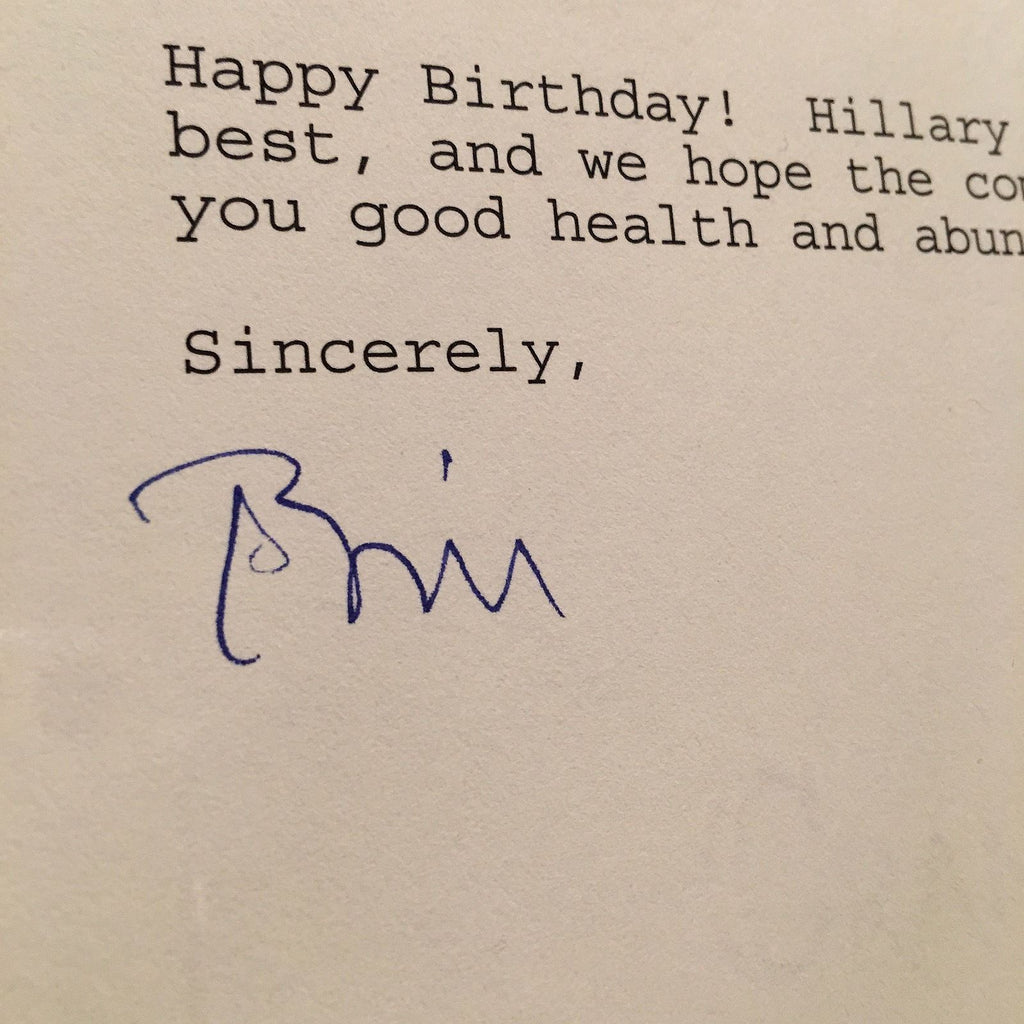 Happy Birthday! Hillary
best, and we hope the
you good health and
Sincerely,
Bill